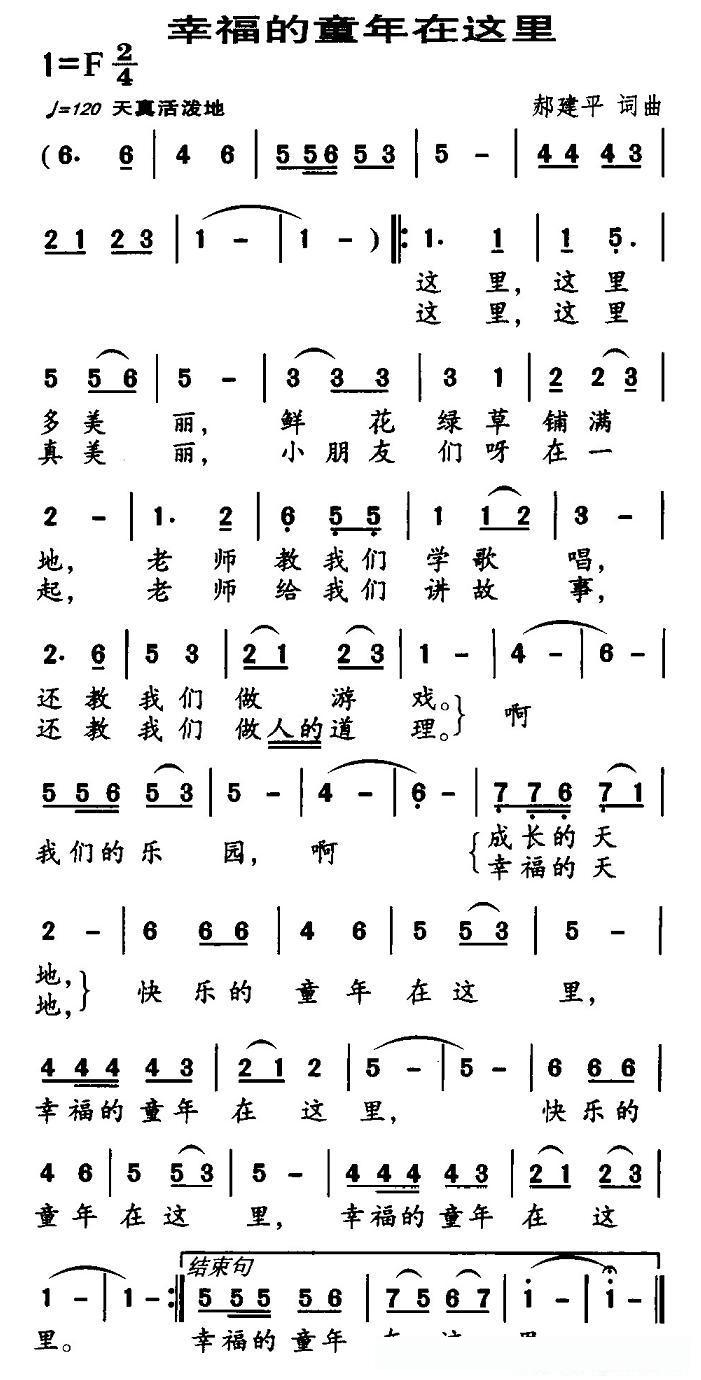 幸福的童年在这里
1=F 2/4
♩=120 天真活泼地 郝建平 词曲
(6. 6 | 4 6 | 5 56 5 3 | 5 - | 4 4 4 3 |
2 1 2 3 | 1 - | 1 - ) ‖: 1. 1 | 1 5. |
这 里, 这 里
这 里, 这 里
5 5 6 | 5 - | 3 3 3 | 3 1 | 2 2 3 |
多 美 丽, 鲜 花 绿 草 铺 满
真 美 丽, 小 朋 友 们 呀 在 一
2 - | 1. 2 | 6 5 5 | 1 1 2 | 3 - |
地, 老 师 教 我 们 学 歌 唱,
起, 老 师 给 我 们 讲 故 事,
2. 6 | 5 3 | 2 1 2 3 | 1 - | 4 - | 6 - |
还 教 我 们 做 游 戏。} 啊
还 教 我 们 做 人 的 道 理。}
5 5 6 5 3 | 5 - | 4 - | 6 - | 7 7 6 7 1 |
我 们 的 乐 园, 啊 { 成 长 的 天
{ 幸 福 的 天
2 - | 6 6 6 | 4 6 | 5 5 3 | 5 - |
地,} 快 乐 的 童 年 在 这 里,
地,}
4 4 4 4 3 | 2 1 2 | 5 - | 5 - | 6 6 6 |
幸 福 的 童 年 在 这 里, 快 乐 的
4 6 | 5 5 3 | 5 - | 4 4 4 4 3 | 2 1 2 3 |
童 年 在 这 里, 幸 福 的 童 年 在 这
结束句
1 - | 1 - :‖ 5 5 5 5 6 | 7 5 6 7 | i - | i - ‖
里。 幸 福 的 童 年